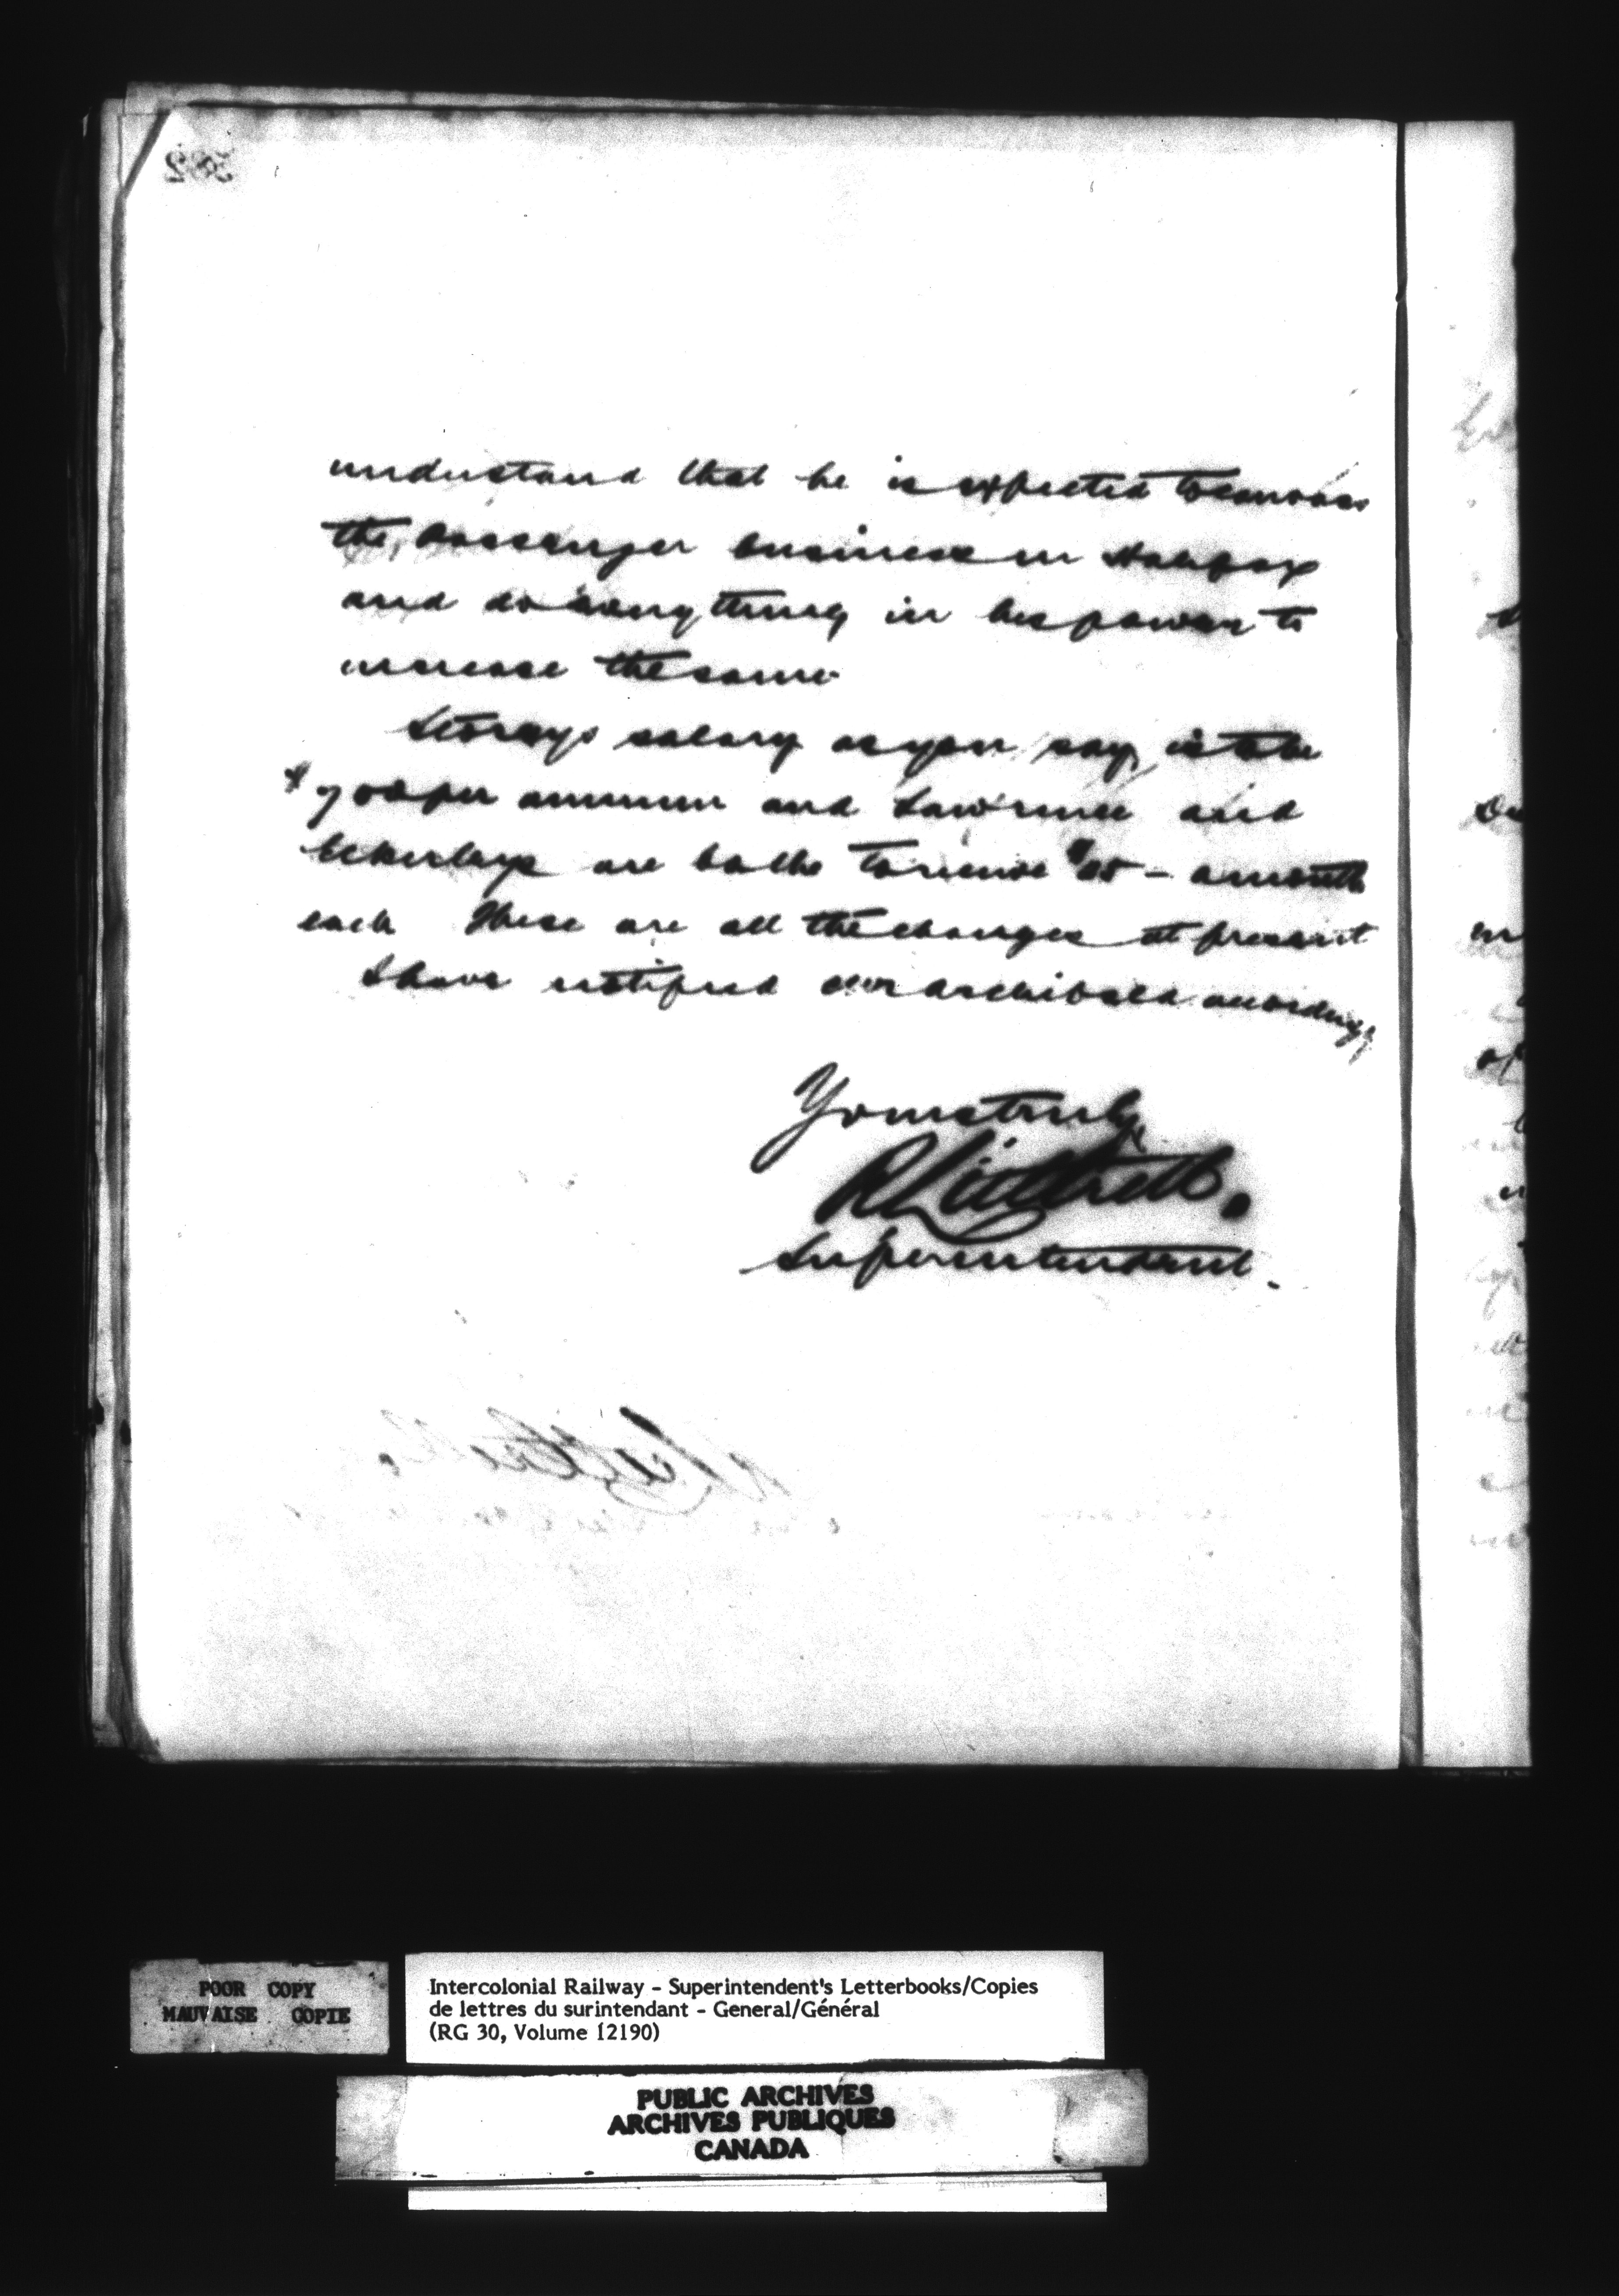 understand that he is expected to canvass
the passenger business in Halifax
and do everything in his power to
increase the same.
Storeys salary as you say, is to be
per annum and Lawrence and
are both to receive a month
each These are all the changes at present
I have notified Archibald accordingly
Yours truly
Superintendent.
POOR COPY
MAUVAISE COPIE
Intercolonial Railway - Superintendent's Letterbooks/Copies
de lettres du surintendant - General/Général
(RG 30, Volume 12190)
PUBLIC ARCHIVES
ARCHIVES PUBLIQUES
CANADA